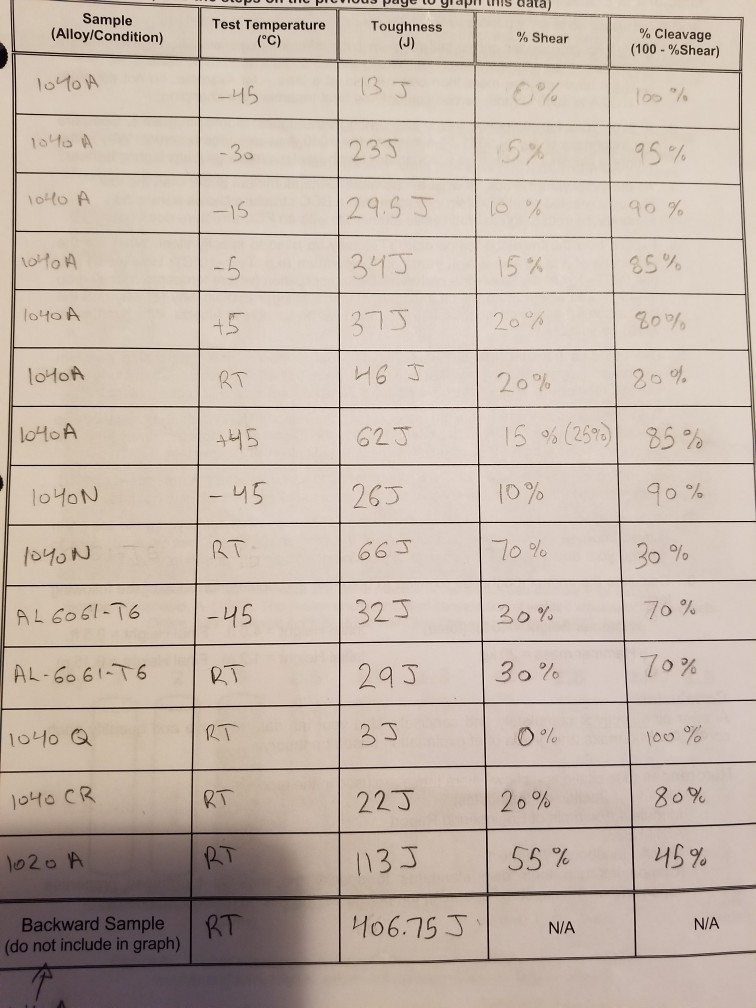 the steps on the previous page to graph this data)
Sample (Alloy/Condition) Test Temperature (°C) Toughness (J) % Shear % Cleavage (100 - %Shear)
1040A -45 13 J 0% 100 %
1040 A -30 23J 5% 95 %
1040 A -15 29.5 J 10 % 90 %
1040A -5 34J 15 % 85 %
1040A +5 37J 20% 80%
1040A RT 46 J 20% 80%
1040A +45 62J 15 % (25%) 85 %
1040N -45 26J 10% 90 %
1040N RT 66 J 70 % 30 %
AL 6061-T6 -45 32J 30% 70 %
AL-6061-T6 RT 29J 30% 70%
1040 Q RT 3J 0% 100 %
1040 CR RT 22J 20% 80%
1020 A RT 113 J 55 % 45%
Backward Sample (do not include in graph) RT 406.75 J N/A N/A